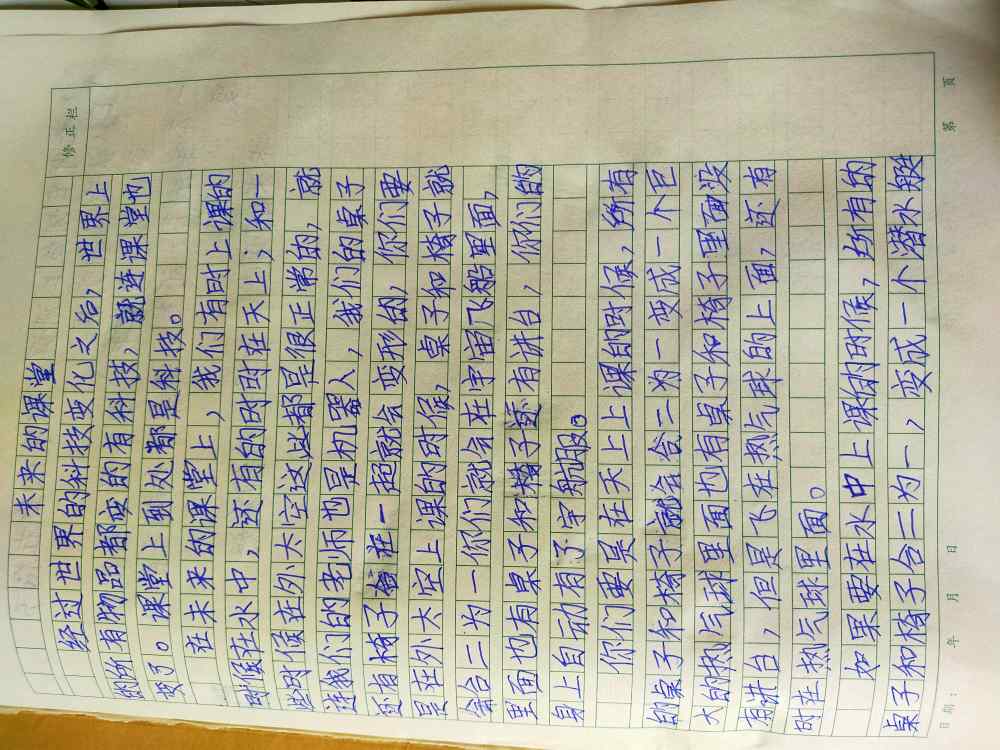 修正栏
未来的课堂
经过世界的科技变化之后，世界上
的所有物品都变的有科技，就连课堂也
变了。课堂上到处都是科技。
在未来的课堂上，我们有时上课的
时候在水中，还有的时时在天上；和一
些时候在外太空这些都是很正常的，就
连我们的老师也是机器人，我们的桌子
还有椅子在一起就会变形的，你们要
是在外太空上课的时候，桌子和椅子就
会合二为一你们就会在宇宙飞船里面，
里面也有桌子和椅子还有讲台，你们的
身上自动有了宇航服。
你们要是在天上上课的时候，所有
的桌子和椅子就会合二为一变成一个巨
大的热气球里面也有桌子和椅子里面没
有讲台，但是飞在热气球的上面，还有
时在热气球里面。
如果要在水中上课的时候，所有的
桌子和椅子合二为一，变成一个潜水艇
日期： 年 月 日 第 页